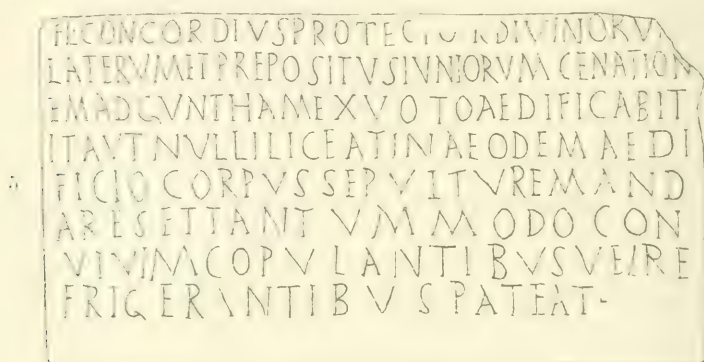 FLCONCORDIVSPROTECTORDIVINORVM
LATERVMETPREPOSITVSIVNIORVMCENATION
EMADGVNTHAMEXVOTOAEDIFICABIT
ITAVTNVLLILICEATINAEODEMAEDI
FICIOCORPVSSEPVLTVREMAND
ARESETTANTVMMODOCON
VIVIVMCOPVLANTIBVSVELRE
FRIGERANTIBVSPATEAT